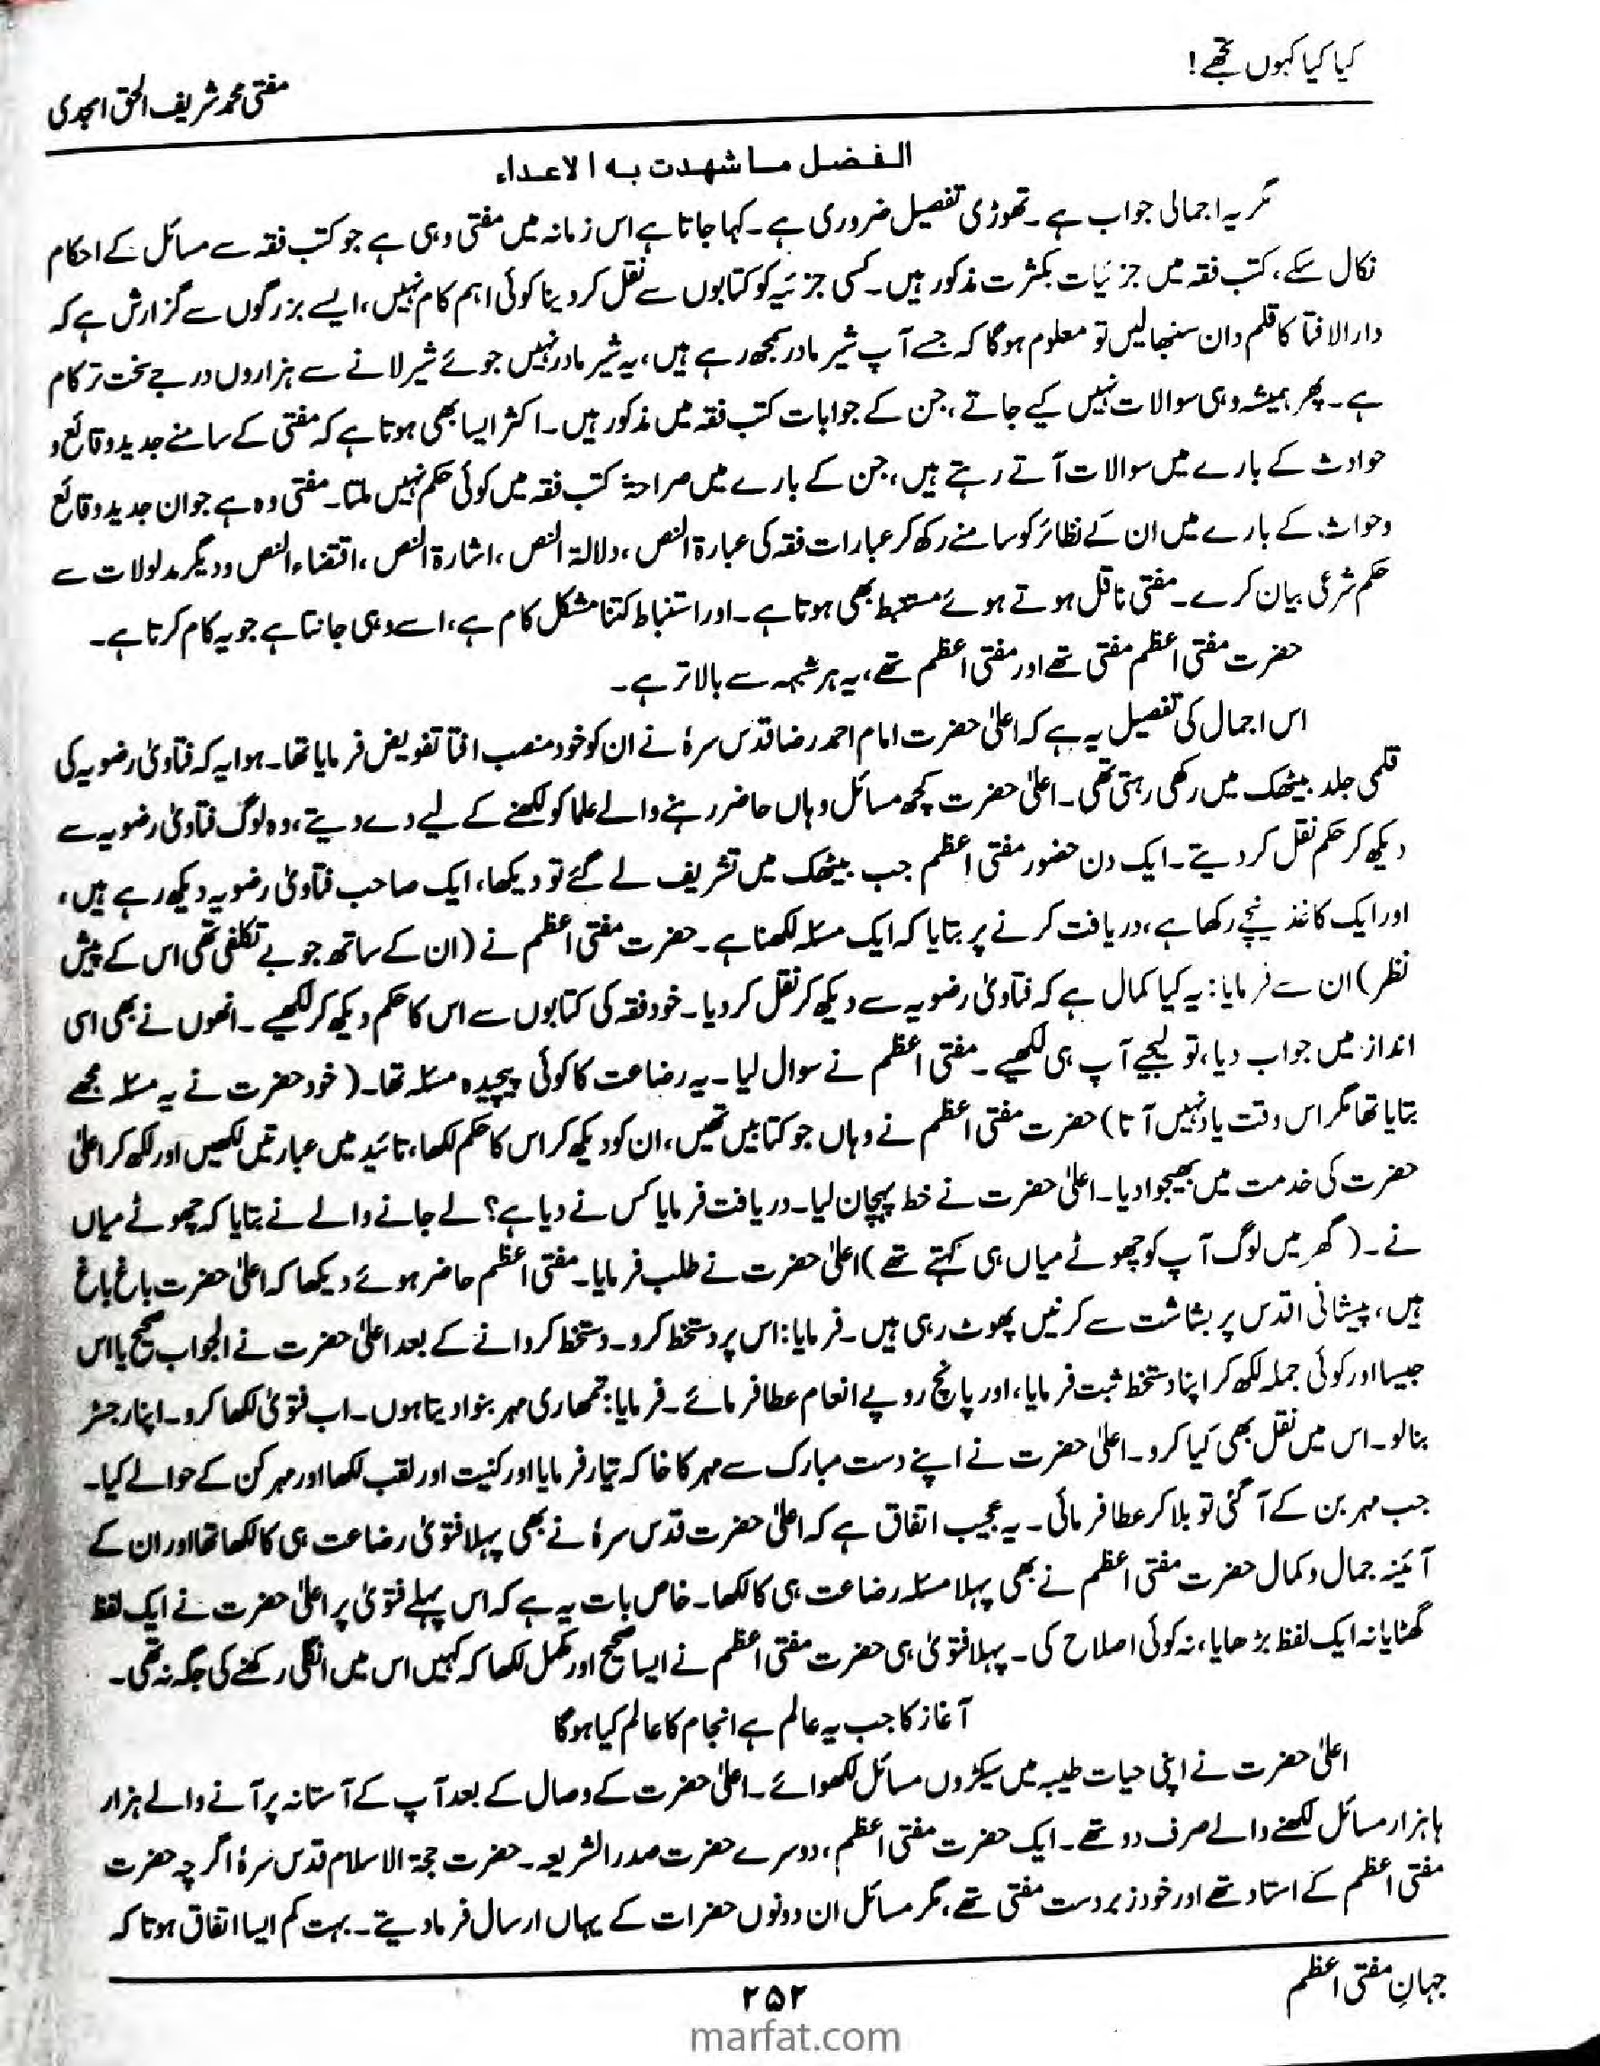 کیا کیا کہوں تجھے!
مفتی محمد شریف الحق امجدی
الفضل ما شهدت به الاعداء
مگر یہ اجمالی جواب ہے۔ تھوڑی تفصیل ضروری ہے۔ کہا جاتا ہے اس زمانہ میں مفتی وہی ہے جو کتب فقہ سے مسائل کے احکام
نکال سکے، کتب فقہ میں جزئیات بکثرت مذکور ہیں۔ کسی جزئیہ کو کتابوں سے نقل کر دینا کوئی اہم کام نہیں، ایسے بزرگوں سے گزارش ہے کہ
دارالافتا کا قلم دان سنبھالیں تو معلوم ہوگا کہ جسے آپ شیر مادر سمجھ رہے ہیں، یہ شیر مادر نہیں جوئے شیر لانے سے ہزاروں درجے سخت تر کام
ہے۔ پھر ہمیشہ وہی سوالات نہیں کیے جاتے، جن کے جوابات کتب فقہ میں مذکور ہیں۔ اکثر ایسا بھی ہوتا ہے کہ مفتی کے سامنے جدید وقائع و
حوادث کے بارے میں سوالات آتے رہتے ہیں، جن کے بارے میں صراحۃً کتب فقہ میں کوئی حکم نہیں ملتا۔ مفتی وہ ہے جو ان جدید وقائع
وحواث کے بارے میں ان کے نظائر کو سامنے رکھ کر عبارات فقہ کی عبارۃ النص، دلالۃ النص، اشارۃ النص، اقتضاء النص ودیگر مدلولات سے
حکم شرعی بیان کرے۔ مفتی ناقل ہوتے ہوئے مستنبط بھی ہوتا ہے۔ اور استنباط کتنا مشکل کام ہے، اسے وہی جانتا ہے جو یہ کام کرتا ہے۔
حضرت مفتی اعظم مفتی تھے اور مفتی اعظم تھے، یہ ہر شبہہ سے بالاتر ہے۔
اس اجمال کی تفصیل یہ ہے کہ اعلیٰ حضرت امام احمد رضا قدس سرہٗ نے ان کو خود منصب افتا تفویض فرمایا تھا۔ ہوا یہ کہ فتاویٰ رضویہ کی
قلمی جلد بیٹھک میں رکھی رہتی تھی۔ اعلیٰ حضرت کچھ مسائل وہاں حاضر رہنے والے علما کو لکھنے کے لیے دے دیتے، وہ لوگ فتاویٰ رضویہ سے
دیکھ کر حکم نقل کر دیتے۔ ایک دن حضور مفتی اعظم جب بیٹھک میں تشریف لے گئے تو دیکھا، ایک صاحب فتاویٰ رضویہ دیکھ رہے ہیں،
اور ایک کاغذ نیچے رکھا ہے، دریافت کرنے پر بتایا کہ ایک مسئلہ لکھنا ہے۔ حضرت مفتی اعظم نے (ان کے ساتھ جو بے تکلفی تھی اس کے پیش
نظر) ان سے فرمایا: یہ کیا کمال ہے کہ فتاویٰ رضویہ سے دیکھ کر نقل کر دیا۔ خود فقہ کی کتابوں سے اس کا حکم دیکھ کر لکھیے۔ انھوں نے بھی اسی
انداز میں جواب دیا، تو لیجیے آپ ہی لکھیے۔ مفتی اعظم نے سوال لیا۔ یہ رضاعت کا کوئی پیچیدہ مسئلہ تھا۔ (خود حضرت نے یہ مسئلہ مجھے
بتایا تھا مگر اس وقت یاد نہیں آتا) حضرت مفتی اعظم نے وہاں جو کتابیں تھیں، ان کو دیکھ کر اس کا حکم لکھا، تائید میں عبارتیں لکھیں اور لکھ کر اعلیٰ
حضرت کی خدمت میں بھیجوا دیا۔ اعلیٰ حضرت نے خط پہچان لیا۔ دریافت فرمایا کس نے دیا ہے؟ لے جانے والے نے بتایا کہ چھوٹے میاں
نے۔ (گھر میں لوگ آپ کو چھوٹے میاں ہی کہتے تھے) اعلیٰ حضرت نے طلب فرمایا۔ مفتی اعظم حاضر ہوئے دیکھا کہ اعلیٰ حضرت باغ باغ
ہیں، پیشانی اقدس پر بشاشت سے کرنیں پھوٹ رہی ہیں۔ فرمایا: اس پر دستخط کرو۔ دستخط کروانے کے بعد اعلیٰ حضرت نے الجواب صحیح یا اس
جیسا اور کوئی جملہ لکھ کر اپنا دستخط ثبت فرمایا، اور پانچ روپے انعام عطا فرمائے۔ فرمایا: تمھاری مہر بنوا دیتا ہوں۔ اب فتویٰ لکھا کرو۔ اپنا رجسٹر
بنالو۔ اس میں نقل بھی کیا کرو۔ اعلیٰ حضرت نے اپنے دست مبارک سے مہر کا خاکہ تیار فرمایا اور کنیت اور لقب لکھا اور مہر کن کے حوالے کیا۔
جب مہر بن کے آگئی تو بلا کر عطا فرمائی۔ یہ عجیب اتفاق ہے کہ اعلیٰ حضرت قدس سرہٗ نے بھی پہلا فتویٰ رضاعت ہی کا لکھا تھا اور ان کے
آئینہ جمال و کمال حضرت مفتی اعظم نے بھی پہلا مسئلہ رضاعت ہی کا لکھا۔ خاص بات یہ ہے کہ اس پہلے فتویٰ پر اعلیٰ حضرت نے ایک لفظ
گھٹایا نہ ایک لفظ بڑھایا، نہ کوئی اصلاح کی۔ پہلا فتویٰ ہی حضرت مفتی اعظم نے ایسا صحیح اور مکمل لکھا کہ کہیں اس میں انگلی رکھنے کی جگہ نہ تھی۔
آغاز کا جب یہ عالم ہے انجام کا عالم کیا ہوگا
اعلیٰ حضرت نے اپنی حیات طیبہ میں سیکڑوں مسائل لکھوائے۔ اعلیٰ حضرت کے وصال کے بعد آپ کے آستانہ پر آنے والے ہزار
ہا ہزار مسائل لکھنے والے صرف دو تھے۔ ایک حضرت مفتی اعظم، دوسرے حضرت صدر الشریعہ۔ حضرت حجۃ الاسلام قدس سرہٗ اگرچہ حضرت
مفتی اعظم کے استاد تھے اور خود زبردست مفتی تھے، مگر مسائل ان دونوں حضرات کے یہاں ارسال فرما دیتے۔ بہت کم ایسا اتفاق ہوتا کہ
جہانِ مفتی اعظم
۲۵۲
marfat.com